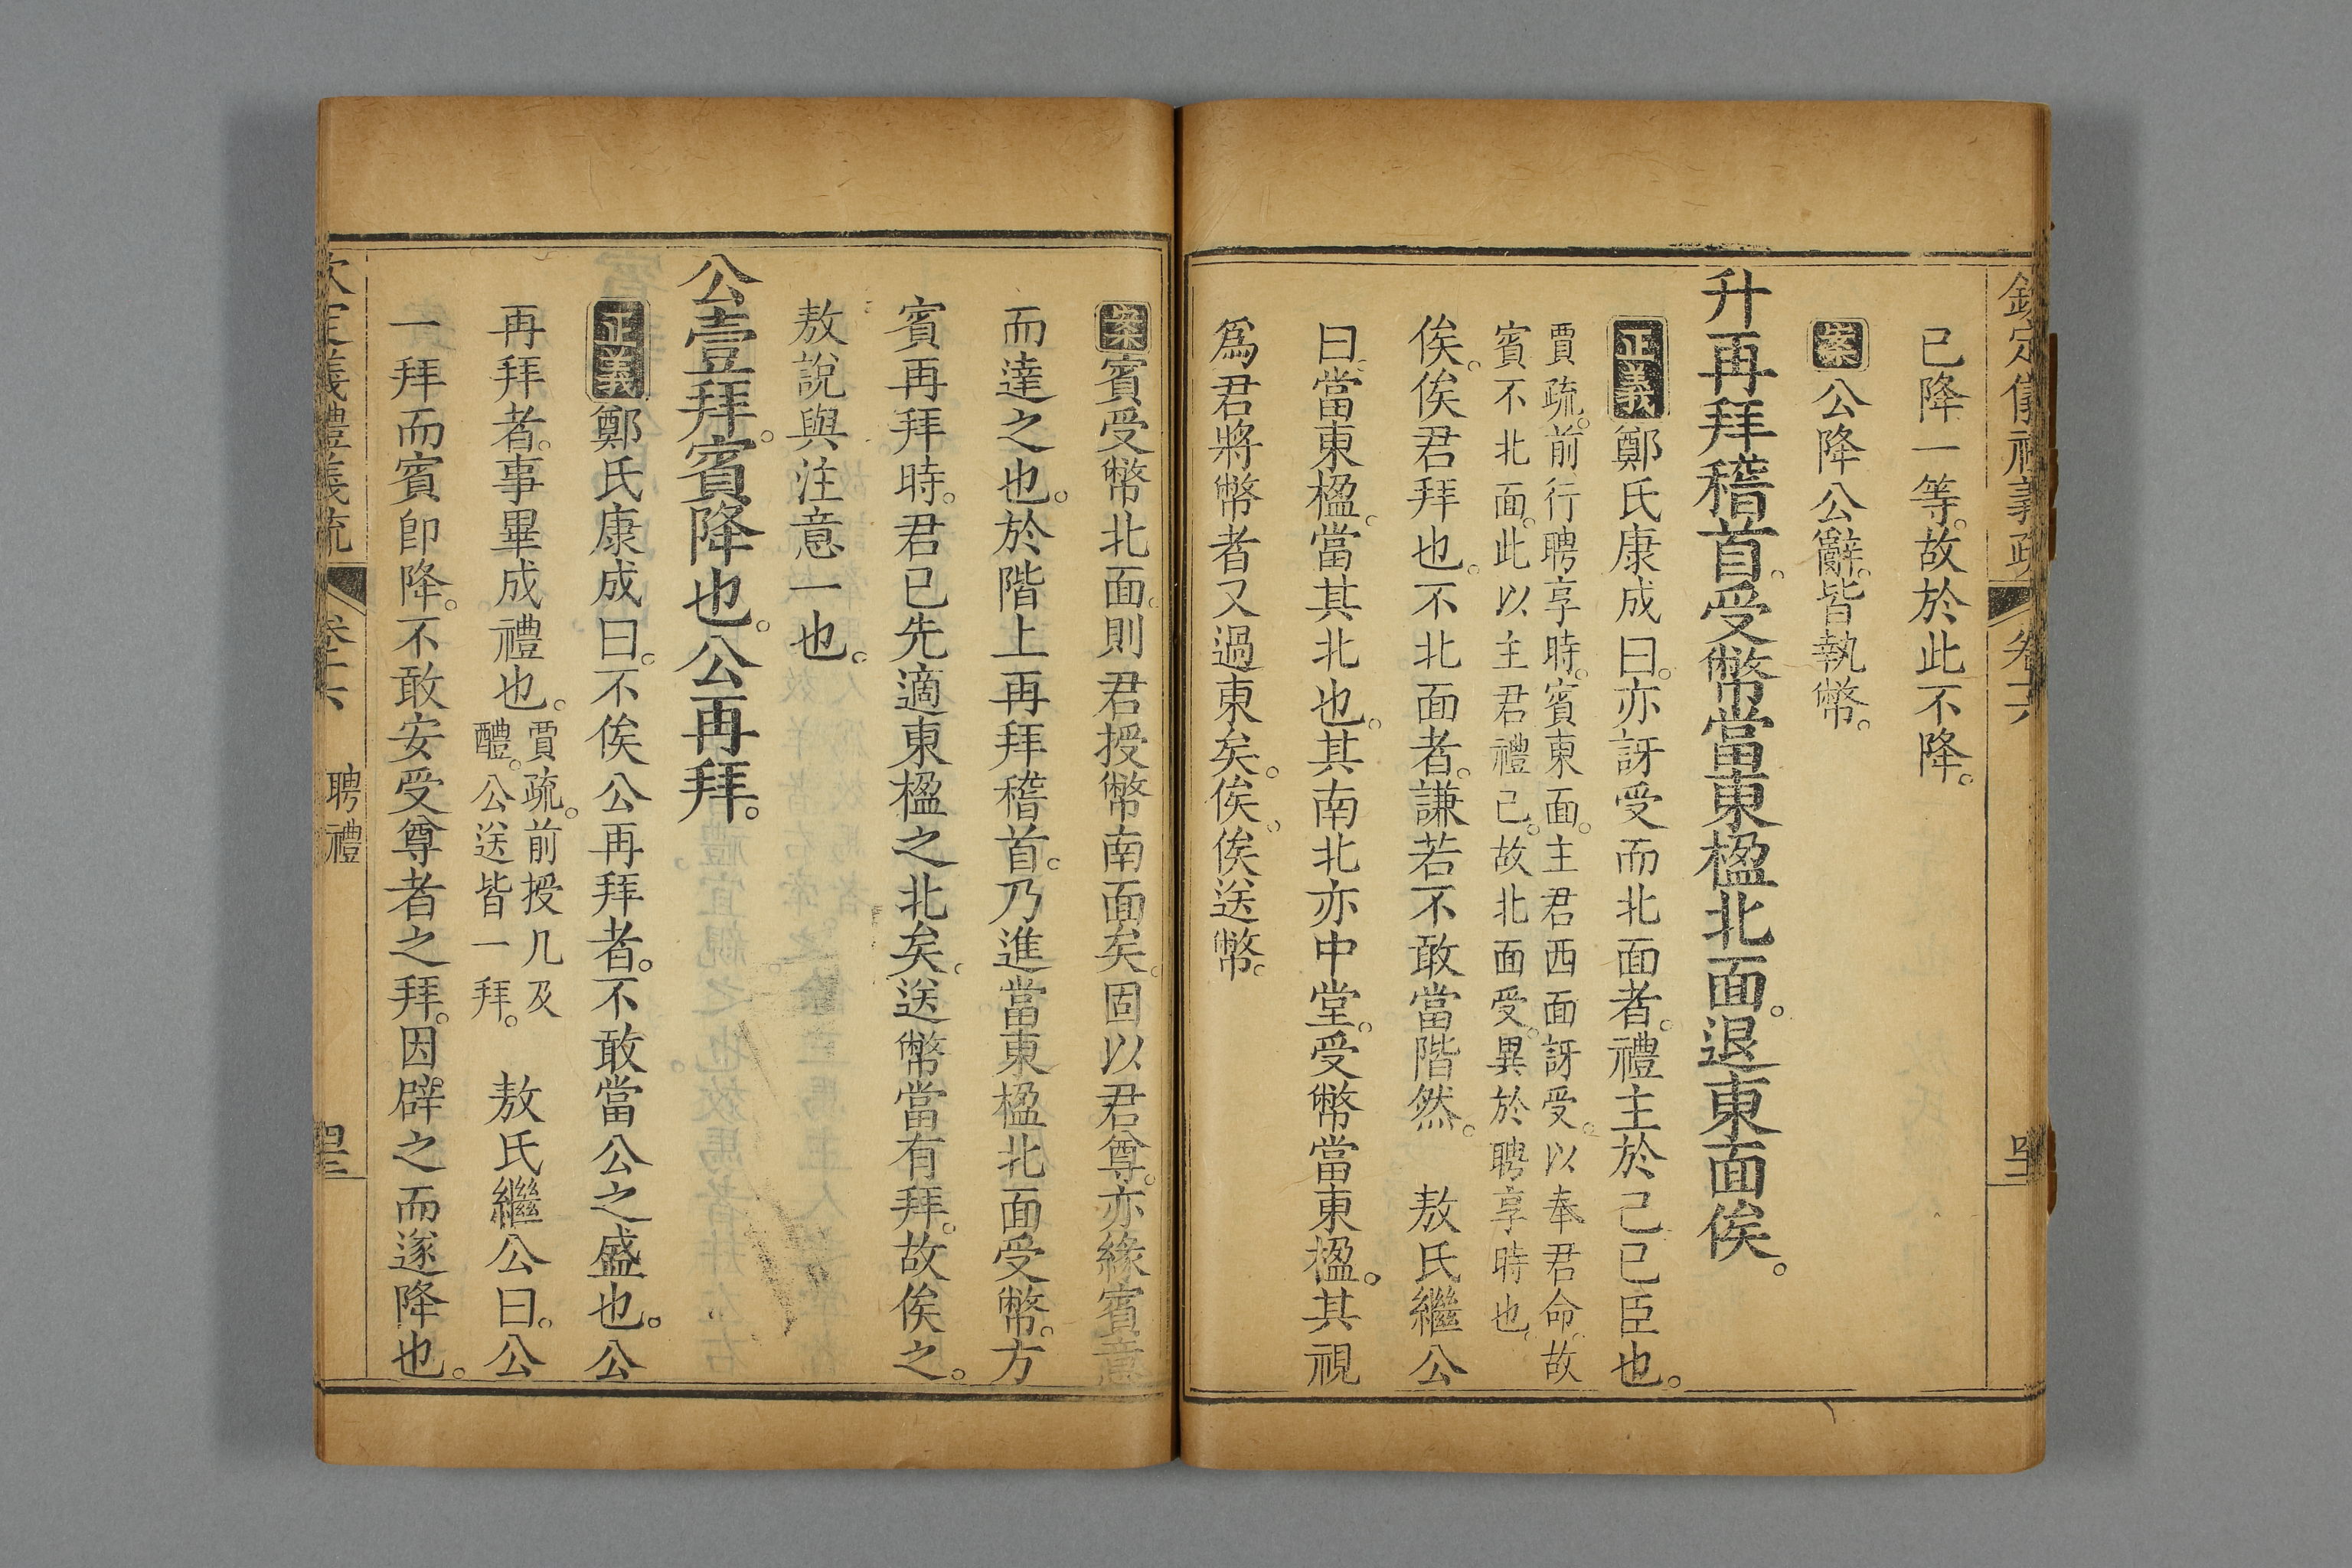 欽定儀禮義疏 卷十六
已降一等。故於此不降。
案 公降公辭。皆執幣。
升再拜稽首。受幣當東楹北面。退東面俟。
正義 鄭氏康成曰。亦訝受而北面者。禮主於己已臣也。
賈疏。前行聘享時。賓東面。主君西面訝受。以奉君命。故
賓不北面。此以主君禮己。故北面受。異於聘享時也。
俟。俟君拜也。不北面者。謙若不敢當階然。 敖氏繼公
曰。當東楹。當其北也。其南北亦中堂。受幣當東楹。其視
為君將幣者又過東矣。俟。俟送幣。
案 賓受幣北面。則君授幣南面矣。固以君尊。亦緣賓意
而達之也。於階上再拜稽首。乃進當東楹北面受幣。方
賓再拜時。君已先適東楹之北矣。送幣當有拜。故俟之。
敖說與注意一也。
公壹拜。賓降也。公再拜。
正義 鄭氏康成曰。不俟公再拜者。不敢當公之盛也。公
再拜者。事畢成禮也。
賈疏。前授几及
醴。公送皆一拜。
敖氏繼公曰。公
一拜而賓卽降。不敢安受尊者之拜。因辟之而遂降也。
欽定義禮義疏 卷十六 聘禮